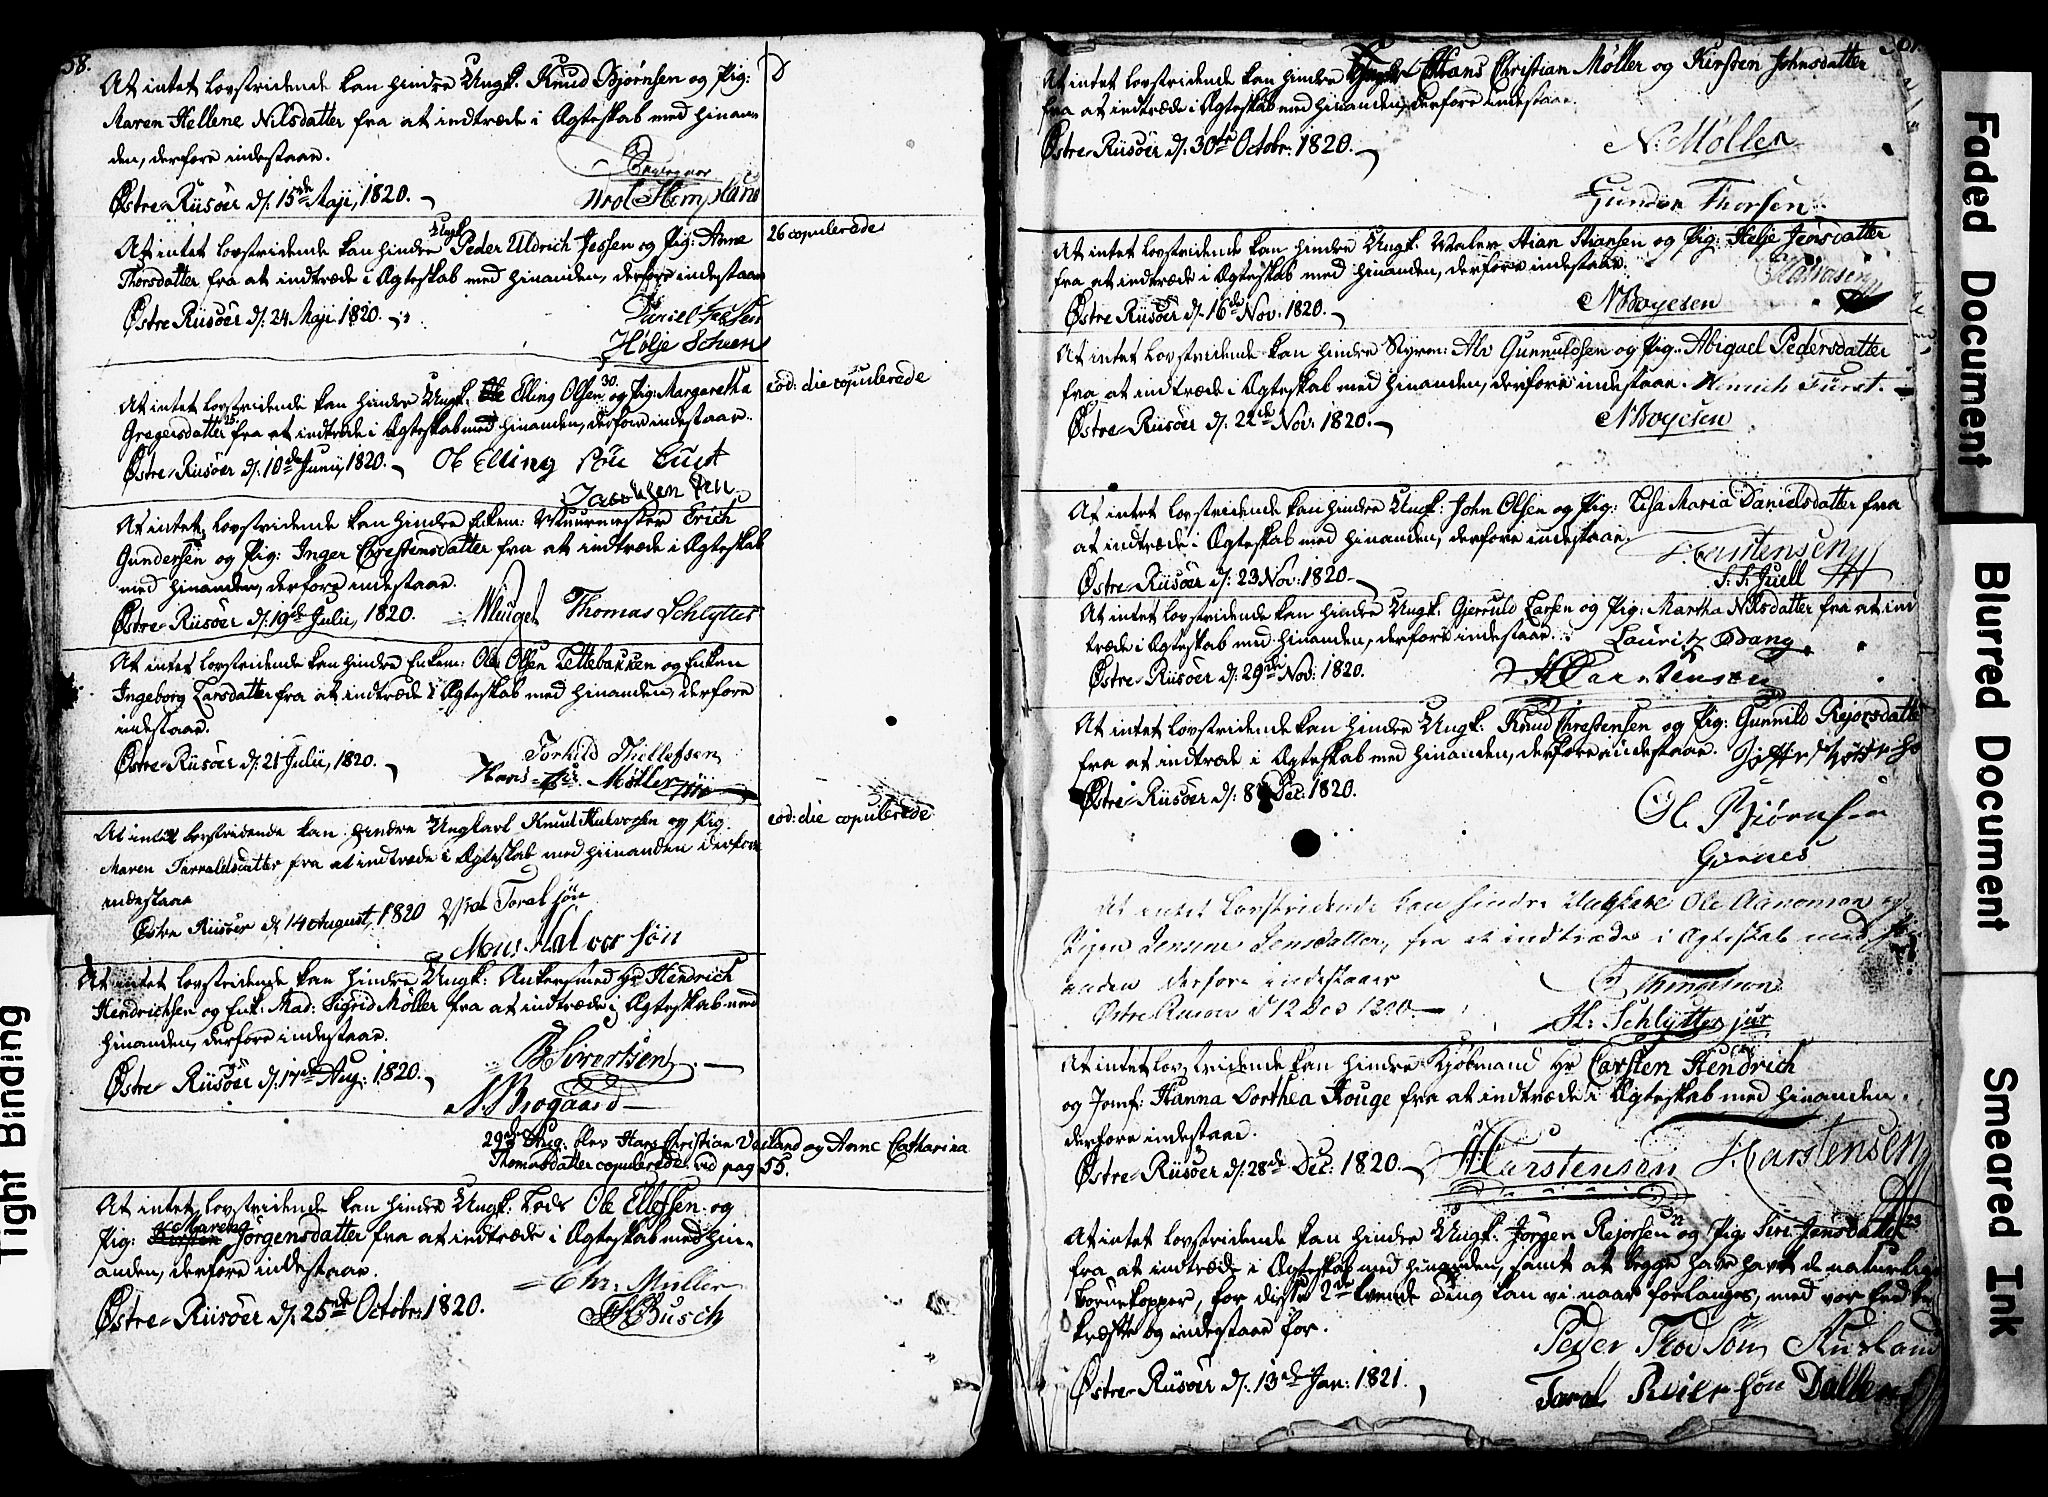 58.
At intet lovstridende kan hindre Ungk. Knud Bjørnsen og Pig:
Maren Hellene Nilsdatter fra at indtræde i Ægteskab med hinan-
den, derfore indestaar.
Østre-Riisøer d/: 15de Maji, 1820.
26 copulerede
At intet lovstridende kan hindre Ungk. Peder Uldrich Jessen og Pig: Anne
Thorsdatter fra at indtræde i Ægteskab med hinanden, derfore indestaar
Østre Riisøer d/: 24 Maji 1820.
Daniel Jessen
Holje Scheen
eod: die copulerede
At intet lovstridende kan hindre Ungk. Elling Olsen 30. og Pig: Margaretha
Gregersdatter 25 fra at indtræde i Ægteskab med hinanden, derfore indestaar.
Østre-Riisøer d/: 10de Junij, 1820.
At intet lovstridende kan hindre Enkem: Muurmester Erich
Gundersen og Pig: Inger Chrestensdatter fra at indtræde i Ægteskab
med hinanden, derfore indestaar.
Østre-Riisøer d/: 19de Julii, 1820.
Thomas Schlytter
At intet lovstridende kan hindre Enkem: Ole Olsen Tettebakken og Enken
Ingeborg Larsdatter fra at indtræde i Ægteskab med hinanden, derfore
indestaar.
Østre-Riisøer d/: 21 Julii, 1820.
Torkild Thellefsen
Hans Chr. Møller
eod: die copulerede
At intet lovstridende kan hindre Ungkarl Knud Halvorsen og Pig.
Maren Tarraldsdatter fra at indtræde i Ægteskab med hinanden derfore
indestaae
Østre Riisøer d/ 14 August, 1820
Toral søn
Halvor søn
At intet lovstridende kan hindre Ungk: Ankersmed Hr Hendrich
Hendrichsen og Enk: Mad: Sigrid Møller fra at indtræde i Ægteskab med
hinanden, derfore indestaar.
Østre-Riisøer d/: 17de Aug: 1820.
Sivertsen
N. Brogaard
29de Aug: blev Hans Christian Vaeland og Anne Catharina
Thomasdatter copulerede. vid pag 55.
At intet lovstridende kan hindre Ungk: Lods Ole Ellefsen og
Pig: Kirsten Maren Jørgensdatter fra at indtræde i Ægteskab med hin-
anden, derfore indestaar.
Østre-Riisøer d/: 25de Octobr: 1820.
Chr. Müller
Busch
At intet lovstridende kan hindre Hans Christian Møller og Kirsten Johnsdatter
fra at indtræde i Ægteskab med hinanden, derfore indestaar.
Østre-Riisøer d/: 30te Octobr: 1820.
N. Møller
Gunder Thorsen
At intet lovstridende kan hindre Ungk. Stian Stiansen og Pig: Helje Jensdatter
fra at indtræde i Ægteskab med hinanden, derfore indestaar.
Østre Riisøer d/: 16de Nov: 1820.
N Boyesen
At intet lovstridende kan hindre Styrm: Alv Gunnulfsen og Pig: Abigael Pedersdatter
fra at indtræde i Ægteskab med hinanden, derfore indestaar. Henrich Fürst
Østre-Riisøer d/: 22de Nov: 1820.
N Boyesen
At intet lovstridende kan hindre Ungk: John Olsen og Pig: Lisa Maria Danielsdatter fra
at indtræde i Ægteskab med hinanden, derfore indestaar.
Østre-Riisøer d/: 23 Nov: 1820
Karstensen
S. S. Juell
At intet lovstridende kan hindre Ungk. Gjeruld Larsen og Pig: Martha Nilsdatter fra at ind
træde i Ægteskab med hinanden, derfore indestaar.
Lauritz Bang
Østre-Riisøer d/: 29de Nov: 1820.
H Carstensen
At intet lovstridende kan hindre Ungk: Knud Chrestensen og Pig: Gunnild Rejorsdatter
fra at indtræde i Ægteskab med hinanden, derfore indestaar.
Østre-Riisøer d/: 8 Dec: 1820.
Ol. Bjørnsen
Gernes
At intet Lovstridende kan hindre Ungkarl Ole Aanonsen og
Pigen Jensine Jensdatter, fra at indtræde i Ægteskab med hin
anden derfore indestaaer
Østre Riisøer d 12 Dec 1820
Thomassen
H. Schlytter jur
At intet lovstridende kan hindre Kjøbmand Hr Carsten Hendrich
og Jomf: Hanna Dorthea Houge fra at indtræde i Ægteskab med hinanden.
derfore indestaar.
Østre-Riisøer d/: 28de Dec: 1820.
H Carstensen
Karstensen
At intet lovstridende kan hindre Ungk: Jørgen Rejorsen og Pig: Siri Jensdatter 23
fra at indtræde i Ægteskab med hinanden, samt at begge have havt de naturlige
Børnekopper, for disse 2de kan vi naar forlanges, med vor Eed be
kræfte og indestaae for.
Østre-Riisøer d/: 13de Jan: 1821.
Peder
Taral Reiersøn
Faded Document
Blurred Document
Smeared Ink
Tight Binding